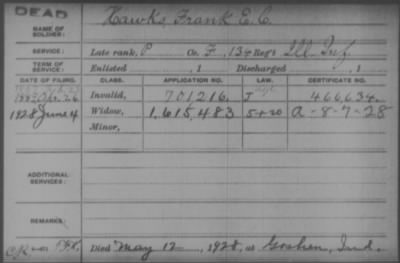 DEAD
NAME OF SOLDIER: Hawks, Frank E. C.
SERVICE: Late rank, P Co. F, 134 Reg't Ill Inf
TERM OF SERVICE: Enlisted , 1 Discharged , 1
DATE OF FILING. CLASS. APPLICATION NO. LAW. CERTIFICATE NO.
Apr. 26 Invalid, 701,216. J 466634.
1928 June 4 Widow, 1,615,483 5-1-20 A-8-7-28
Minor,
ADDITIONAL SERVICES:
REMARKS:
Died May 12, 1928, at Goshen, Ind.